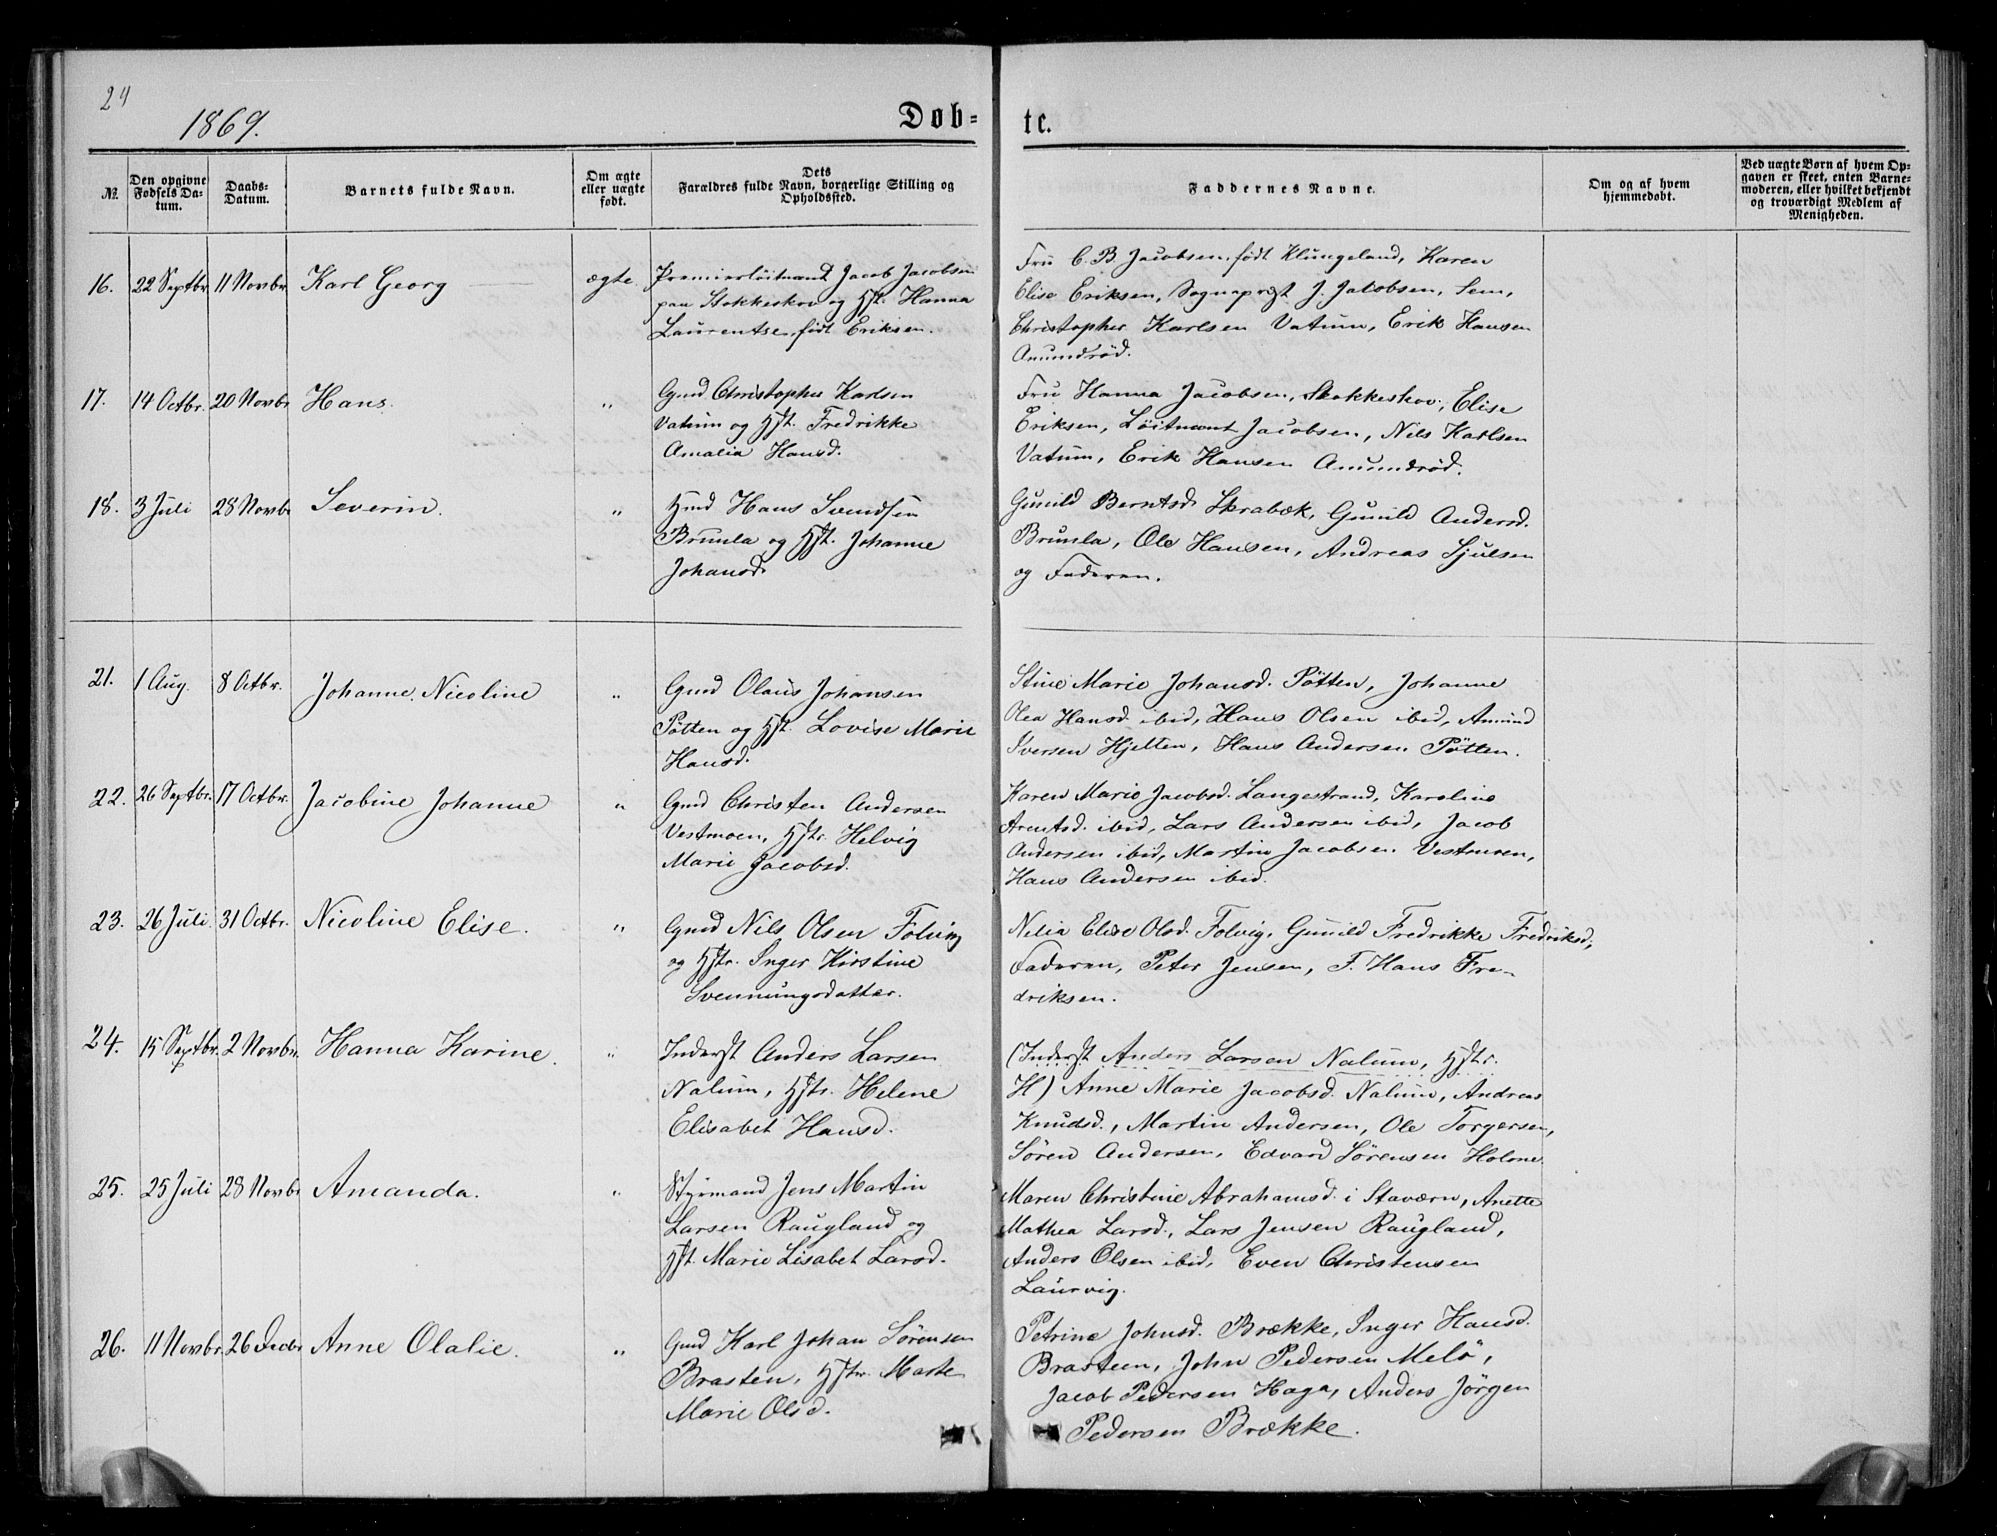 24
1869.
Døb-
te.
№.
Den opgivne
Fødsels Da-
tum.
Daabs-
Datum.
Barnets fulde Navn.
Om ægte
eller uægte
født.
Dets
Forældres fulde Navn, borgerlige Stilling og
Opholdssted.
Faddernes Navne.
Om og af hvem
hjemmedøbt.
Ved uægte Børn af hvem Op-
gaven er skeet, enten Barne-
moderen, eller hvilket bekjendt
og troværdigt Medlem af
Menigheden.
16. 22 Septbr. 11 Novbr. Karl Georg ægte
Premierløitnant Jacob Jacobsen
paa Stokkeskov og Hst. Hanna
Laurentse, født Eriksen.
Fru C. B. Jacobsen, født Klungeland, Karen
Elise Eriksen, Sognepræst J. Jacobsen, Sem,
Christopher Karlsen Vatum, Erik Hansen
Anumdröd.
17. 14 Octbr. 20 Novbr. Hans. „
Gmd Christopher Karlsen
Vatum og Hst. Fredrikke
Amalia Hansd.
Fru Hanna Jacobsen, Stokkeskov, Elise
Eriksen, Löitnant Jacobsen, Nils Karlsen
Vatum, Erik Hansen Anumdröd.
18. 3 Juli 28 Novbr Severin. „
Hmd Hans Svendsen
Brunla og Hst. Johanne
Johansd.
Gunild Berntsd Skrabæk, Gunild Andersd.
Brunla, Ole Hansen, Andreas Sjulsen
og Faderen.
21. 1 Aug. 8 Octbr. Johanne Nicoline „
Gmd Olaus Johansen
Pötten og Hst. Lovise Marie
Hansd.
Stine Marie Johansd. Pötten, Johanne
Olea Hansd. ibid, Hans Olsen ibid, Amund
Iversen Hjelten, Hans Andersen Pötten.
22. 26 Septbr. 17 Octbr. Jacobine Johanne „
Gmd Christen Andersen
Vestmoen, Hstr. Helvig
Marie Jacobsd.
Karen Marie Jacobsd. Langestrand, Karoline
Arentsd. ibid, Lars Andersen ibid, Jacob
Andersen ibid, Martin Jacobsen Vestmoen,
Hans Andersen ibid.
23. 26 Juli 31 Octbr. Nicoline Elise. „
Gmd Nils Olsen Folvig
og Hstr. Inger Kirstine
Svenningsdatter.
Nilia Elise Olsd. Folvig, Gunild Fredrikke Fredriksd,
Faderen, Peter Jensen, F. Hans Fre-
driksen.
24. 15 Septbr. 2 Novbr. Hanna Karine. „
Inderst Anders Larsen
Nalum, Hstr. Helene
Elisabet Hansd.
(Inderst Anders Larsen Nalum, Hstr.
H) Anne Marie Jacobsd. Nalum, Andreas
Knudsd., Martin Andersen, Ole Torgersen,
Sören Andersen, Edvard Sörensen Holme.
25. 25 Juli 28 Novbr Amanda. „
Styrmand Jens Martin
Larsen Raugland og
Hst. Marie Lisabet Larsd.
Maren Christine Abrahamsd. i Staværn, Anette
Mathea Larsd., Lars Jensen Raugland,
Anders Olsen ibid, Even Christensen
Laurvig.
26. 11 Novbr. 26 Decbr Anne Olalie. „
Gmd Karl Johan Sörensen
Brasten, Hstr. Marte
Marie Olsd.
Petrine Johnsd. Brække, Inger Hansd.
Brasteen, John Pedersen Melö,
Jacob Pedersen Haga, Anders Jörgen
Pedersen Brække.